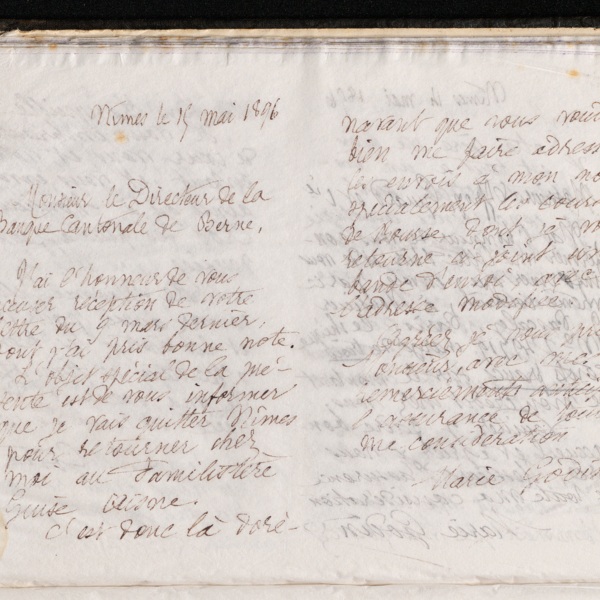 Nîmes le 15 mai 1896
Monsieur le Directeur de la
Banque Cantonale de Berne,
J'ai l'honneur de vous
accuser réception de votre
lettre du 9 mars dernier,
dont j'ai pris bonne note.
L'objet spécial de la pré-
sente est de vous informer
que je vais quitter Nîmes
pour retourner chez
moi au Familistère
Guise Aisne.
C'est donc là doré-
navant que vous
bien me faire
les envois à mon
spécialement les
de bourse dont je
retourne ci joint
bande d'envoi avec
l'adresse modifiée.
Agréez je vous
Monsieur, avec mes
remerciements
l'assurance de
me considération
Marie Godin